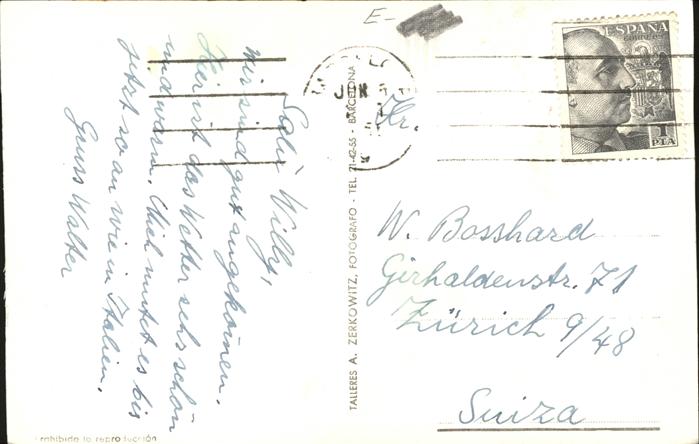 E-
ESPAÑA
CORREOS
1
PTA
JUN
Salü Willy,
wir sind gut angekommen.
Hier ist das Wetter sehr schön
und warm. Mich mutet es bis
jetzt so an wie in Italien.
Gruss Walter
TALLERES A. ZERKOWITZ, FOTOGRAFO - TEL. 21-42-55 - BARCELONA
Hr.
W. Bosshard
Girhaldenstr. 71
Zürich 9/48
Suiza
rohibida la reproducción